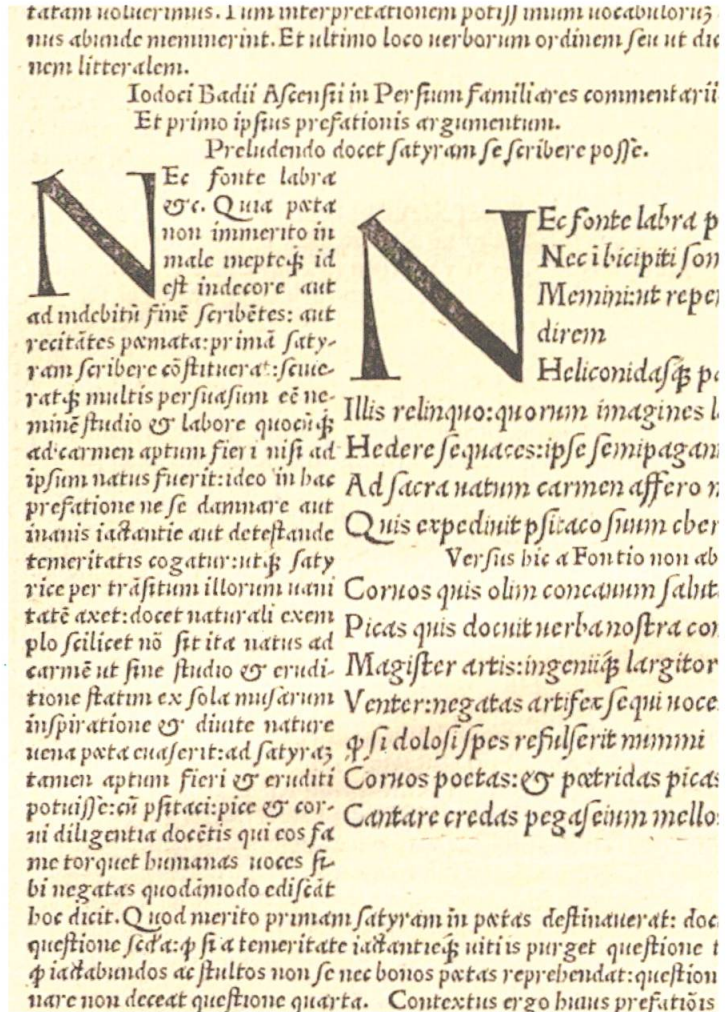 tatam uoluerimus. Tum interpretationem potissimum uocabulorūʒ
nus abunde meminerint. Et ultimo loco uerborum ordinem seu ut dic
nem litteralem.
Iodoci Badii Ascensii in Persium familiares commentarii
Et primo ipsius prefationis argumentum.
Preludendo docet satyram se scribere posse.
NEc fonte labra
&c. Quia pœta
non immerito in
male inepteqȝ id
est indecore aut
ad indebitū finē scribētes: aut
recitātes pœmata: primā saty-
ram scribere cōstituerat: sciue-
ratqȝ multis persuasum eē ne-
minē studio & labore quocūqȝ
ad carmen aptum fieri nisi ad
ipsum natus fuerit: ideo in hac
prefatione ne se damnare aut
inanis iactantie aut detestande
temeritatis cogatur: utqȝ saty
rice per trāsitum illorum uani
tatē axet: docet naturali exem
plo scilicet nō sit ita natus ad
carmē ut sine studio & erudi-
tione statim ex sola musarum
inspiratione & diuite nature
uena pœta euaserit: ad satyraʒ
tamen aptum fieri & eruditi
potuisse: cū psitaci: pice & cor-
ui diligentia docētis qui eos fa
me torquet humanas uoces si-
bi negatas quodāmodo ediscāt
NEc fonte labra p
Nec ī bicipiti som
Memini: ut reper
direm
Heliconidasqȝ pa
Illis relinquo: quorum imagines l
Hedere sequaces: ipse semipagan
Ad sacra uatum carmen affero n
Quis expediuit psitaco suum cher
Versus hic a Fontio non ab
Coruos quis olim concauum salut
Picas quis docuit uerba nostra con
Magister artis: ingeniiqȝ largitor
Venter: negatas artifex sequi uoce
ꝙ si dolosi spes refulserit nummi
Coruos poetas: & pœtridas picas
Cantare credas pegaseium mellos
hoc dicit. Quod merito primam satyram in pœtas destinauerat: doc
questione scd'a: ꝙ si a temeritate iactantieqȝ uitiis purget questione t
ꝙ iactabundos ac stultos non se nec bonos pœtas reprehendat: question
nare non deceat questione quarta. Contextus ergo huius prefatiōis